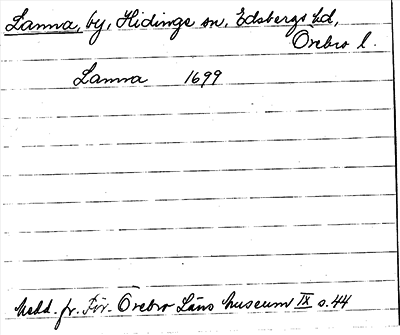 Lanna, by, Hidinge sn, Edsbergs hd,
Örebro l.
Lanna 1699
Medd. fr. För. Örebro Läns museum IX s. 44